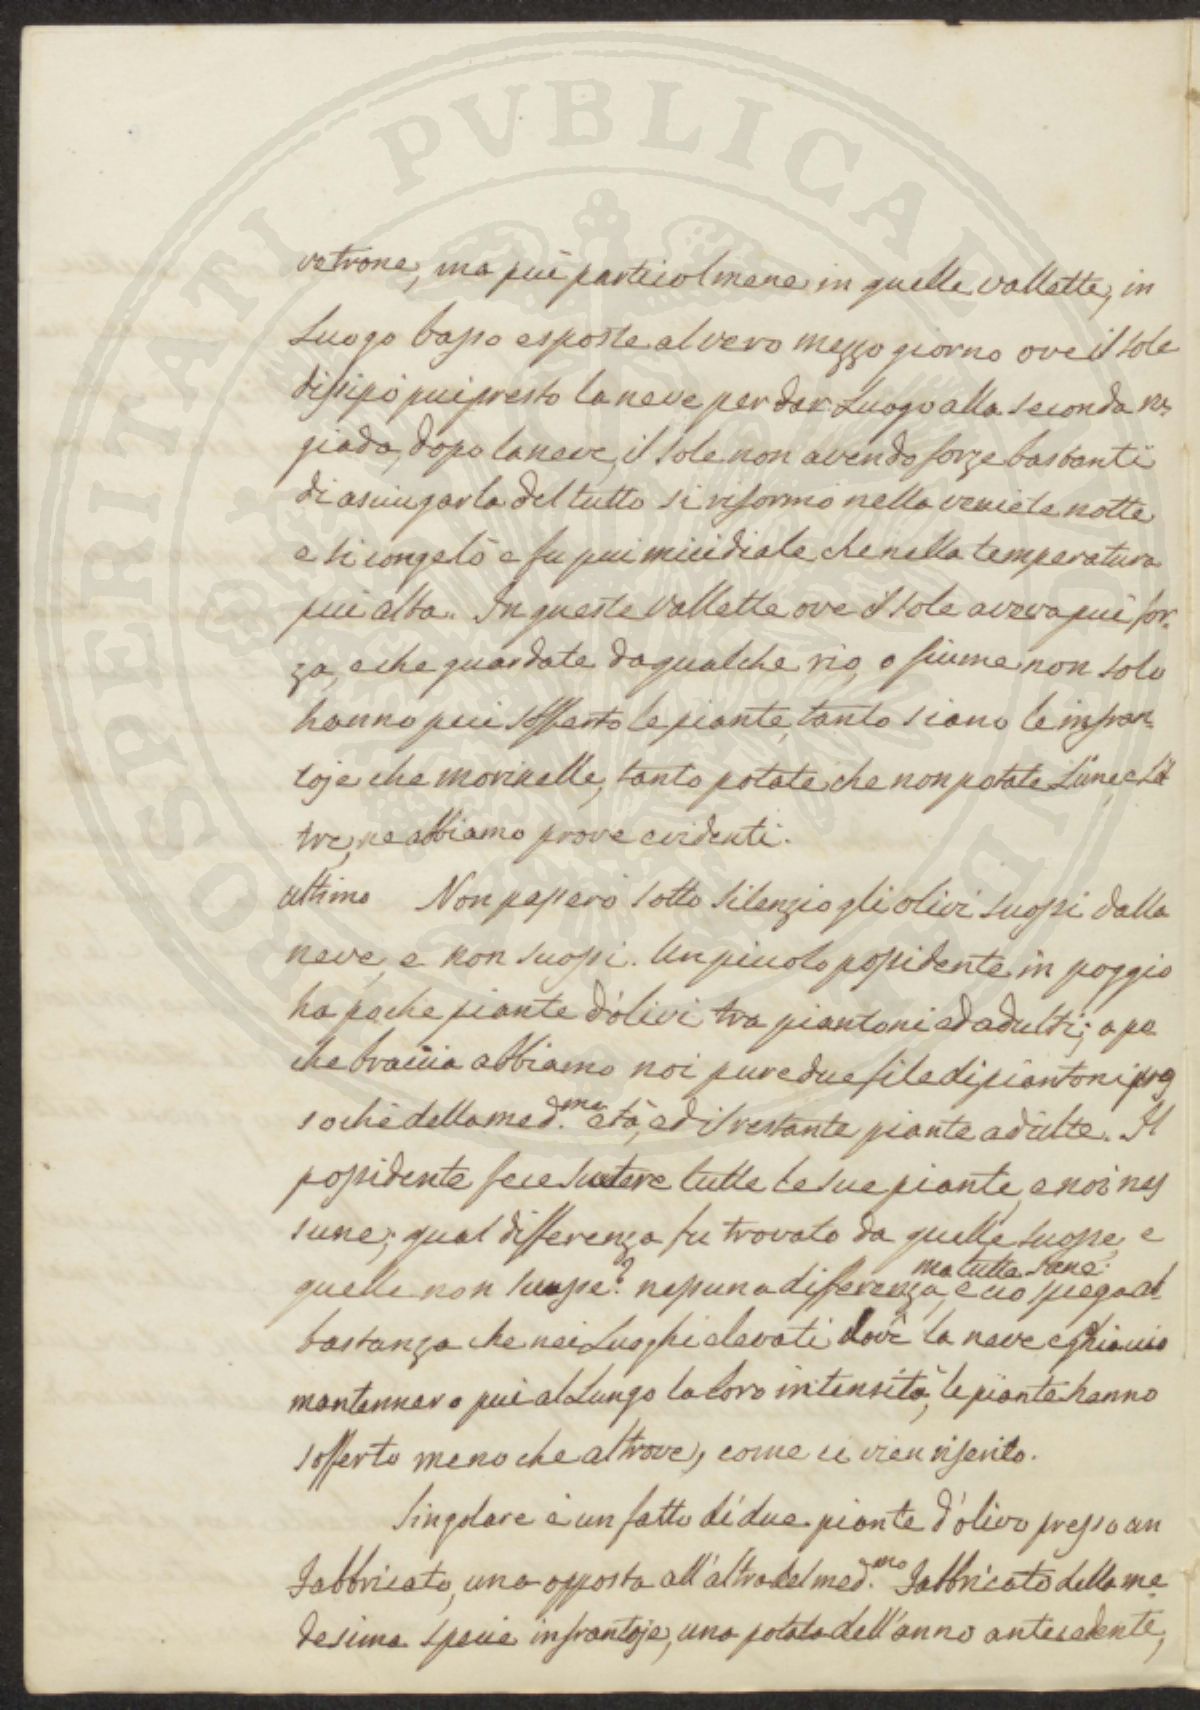 vetrone, ma più particolmene in quelle vallette, in
Luogo basso esposte al vero mezzo giorno ove il sole
dissipò più presto la neve per dar Luogo alla seconda ru-
giada, dopo la neve, il sole non avendo forze bastanti
di asciugarla del tutto si riformò nella veniete notte
e si congelò e fu più micidiale che nella temperatura
più alta. In queste Vallette ove il sole aveva più for-
za, e che guardate da qualche rio, o fiume non solo
hanno più sofferto le piante, tanto siano le infran-
toje che morinelle, tanto potate che non potate L'une e L'al
tre, ne abbiamo prove evidenti.
ultimo Non passerò sotto silenzio gli olivi scossi dalla
neve, e non scossi. Un piccolo possidente in poggio
ha poche piante d'olivi tra piantoni ed adulti; a po
che braccia abbiamo noi pure due file di piantoni pres
sochè della med.ma età, ed il restante piante adulte. Il
possidente fece scotere tutte le sue piante, e noi nes
sune; qual differenza fu trovato da quelle scosse, e
quelle non scosse? nessuna differenza, ma tutte sane: e ciò spiega ab-
bastanza che nei Luoghi elevati dove la neve e ghiaccio
mantennero più al Lungo la loro intensità, le piante hanno
sofferto meno che altrove, come ci vien riferito.
Singolare è un fatto di due piante d'olivo presso un
Fabbricato, una opposta all'altra del med.mo Fabbricato della me-
desima specie infrantoje, una potata dell'anno antecedente,
PROSPERITATI PVBLICAE